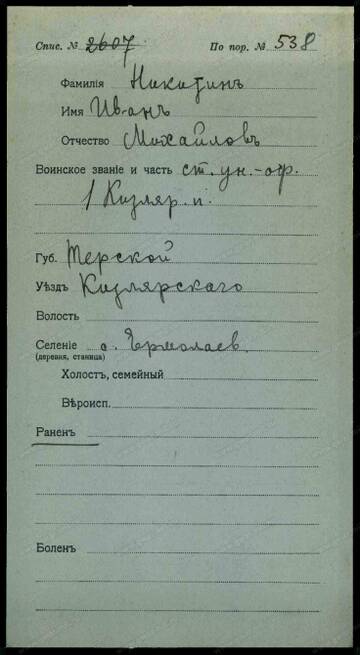 Спис. № 2607 По пор. № 538
Фамилія Никитинъ
Имя Иванъ
Отчество Михайловъ
Воинское званіе и часть ст. ун.-оф.
1 Кизляр. п.
Губ. Терской
Уѣздъ Кизлярскаго
Волость
Селеніе с. Ермолаев.
(деревня, станица)
Холостъ, семейный
Вѣроисп.
Раненъ
Боленъ